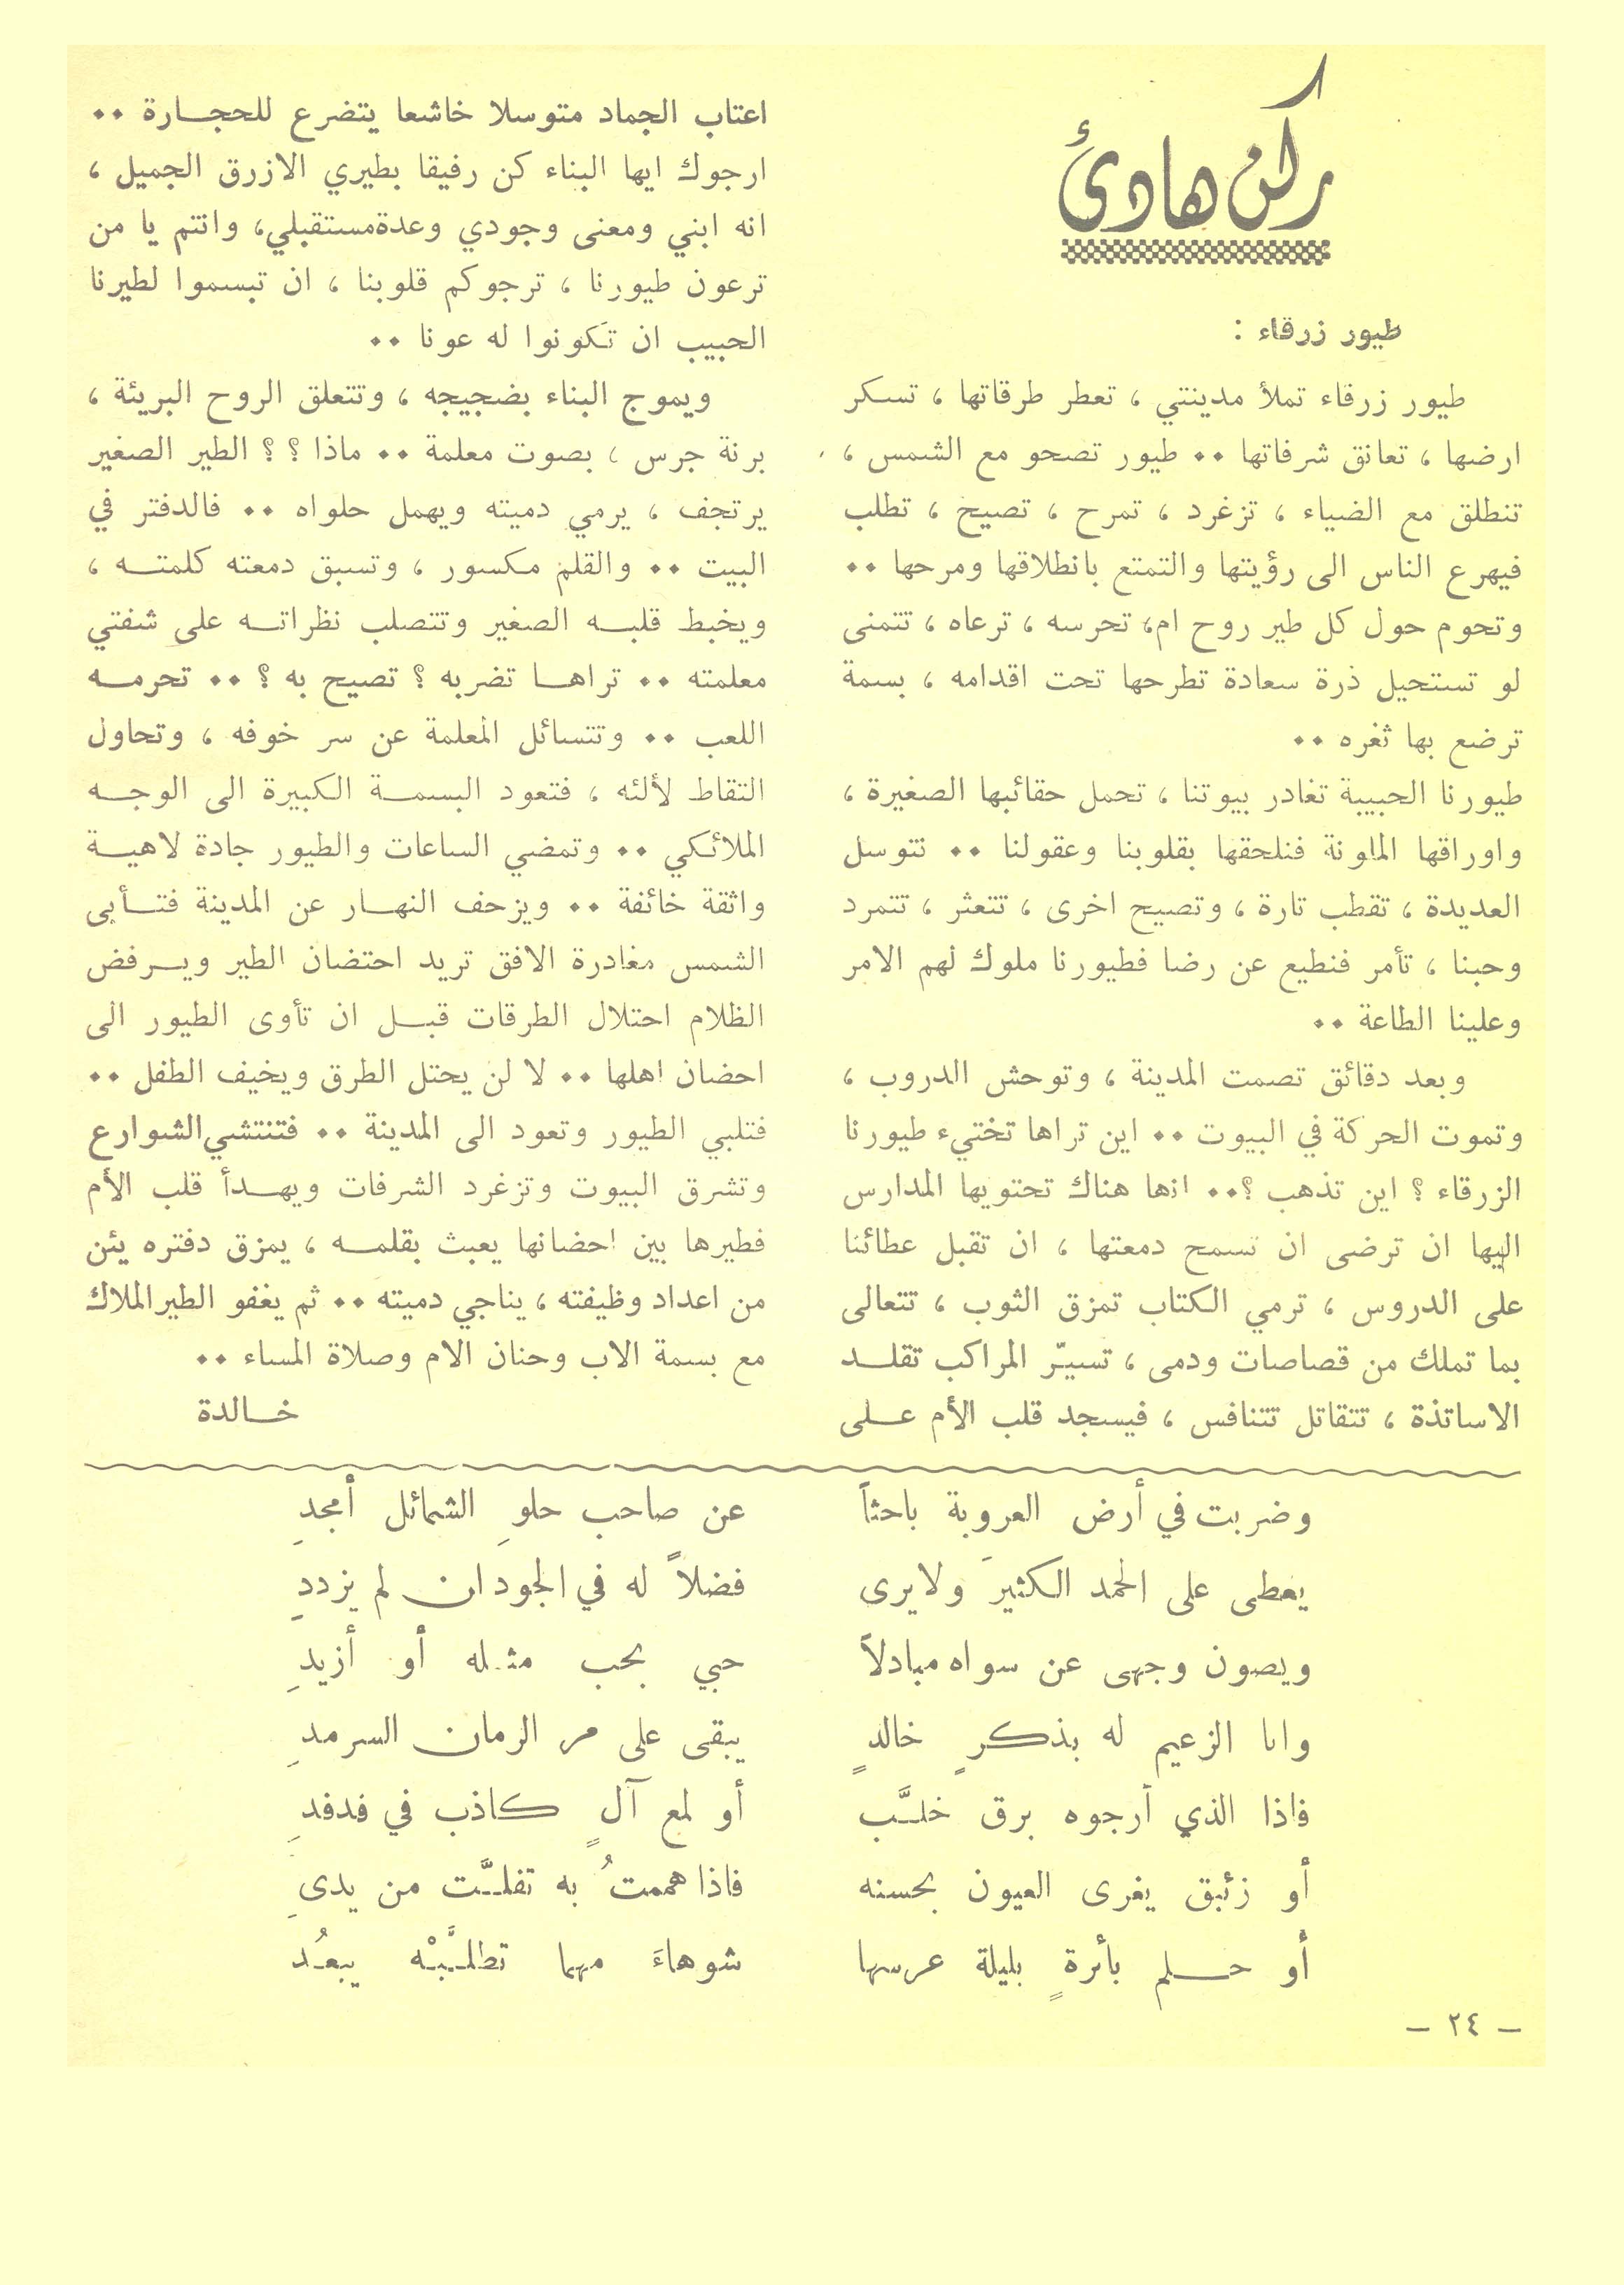 ركن هادئ
طيور زرقاء :
طيور زرقاء تملأ مدينتي ، تعطر طرقاتها ، تسكر
ارضها ، تعانق شرفاتها ٠٠ طيور تصحو مع الشمس ،
تنطلق مع الضياء ، تزغرد ، تمرح ، تصيح ، تطلب
فيهرع الناس الى رؤيتها والتمتع بانطلاقها ومرحها ٠٠
وتحوم حول كل طير روح ام، تحرسه ، ترعاه ، تتمنى
لو تستحيل ذرة سعادة تطرحها تحت اقدامه ، بسمة
ترضع بها ثغره ٠٠
طيورنا الحبيبة تغادر بيوتنا ، تحمل حقائبها الصغيرة ،
واوراقها الملونة فنلحقها بقلوبنا وعقولنا ٠٠ نتوسل
العديدة ، تقطب تارة ، وتصيح اخرى ، تتعثر ، تتمرد
وحبنا ، تأمر فنطيع عن رضا فطيورنا ملوك لهم الامر
وعلينا الطاعة ٠٠
وبعد دقائق تصمت المدينة ، وتوحش الدروب ،
وتموت الحركة في البيوت ٠٠ اين تراها تختيء طيورنا
الزرقاء ؟ اين تذهب ؟٠٠ انها هناك تحتويها المدارس
اليها ان ترضى ان تسمح دمعتها ، ان تقبل عطائنا
على الدروس ، ترمي الكتاب تمزق الثوب ، تتعالى
بما تملك من قصاصات ودمى ، تسيّر المراكب تقلـــد
الاساتذة ، تتقاتل تتنافس ، فيسجد قلب الأم عـــلى
اعتاب الجماد متوسلا خاشعا يتضرع للحجـــارة ٠٠
ارجوك ايها البناء كن رفيقا بطيري الازرق الجميل ،
انه ابني ومعنى وجودي وعدةمستقبلي، وانتم يا من
ترعون طيورنا ، ترجوكم قلوبنا ، ان تبسموا لطيرنا
الحبيب ان تكونوا له عونا ٠٠
ويموج البناء بضجيجه ، وتتعلق الروح البريئة ،
برنة جرس ، بصوت معلمة ٠٠ ماذا ؟ ؟ الطير الصغير
يرتجف ، يرمي دميته ويهمل حلواه ٠٠ فالدفتر في
البيت ٠٠ والقلم مكسور ، وتسبق دمعته كلمتـــه ،
ويخبط قلبـــه الصغير وتتصلب نظراتـــه على شفتي
معلمته ٠٠ تراهـــا تضربه ؟ تصيح به ؟ ٠٠ تحرمـــه
اللعب ٠٠ وتتسائل المعلمة عن سر خوفه ، وتحاول
التقاط لألئه ، فتعود البسمـــة الكبيرة الى الوجـــه
الملائكي ٠٠ وتمضي الساعات والطيور جادة لاهيـــة
واثقة خائفة ٠٠ ويزحف النهـــار عن المدينة فتـــأبى
الشمس مغادرة الافق تريد احتضان الطير ويـــرفض
الظلام احتلال الطرقات قبـــل ان تأوى الطيور الى
احضان اهلها ٠٠ لا لن يحتل الطرق ويخيف الطفل ٠٠
فتلبي الطيور وتعود الى المدينة ٠٠ فتنتشي الشوارع
وتشرق البيوت وتزغرد الشرفات ويهـــدأ قلب الأم
فطيرها بين احضانها يعبث بقلمـــه ، يمزق دفتره يئن
من اعداد وظيفته ، يناجي دميته ٠٠ ثم يغفو الطير الملاك
مع بسمة الاب وحنان الام وصلاة المساء ٠٠
خـــالدة
وضربت في أرض العروبة باحثاً عن صاحب حلوِ الشمائل أمجدِ
يعطى على الحمد الكثيرَ ولا يرى فضلاً له في الجود ان لم يزددِ
ويصون وجهى عن سواه مبادلاً حبي بحب مثله أو أزيدِ
وانا الزعيم له بذكرٍ خالدٍ يبقى على مر الزمان السرمدِ
فاذا الذي أرجوه برق خلَّب أو لمع آلٍ كاذب في فدفدِ
أو زئبق يغرى العيون بحسنه فاذا هممتُ به تفلَّت من يدىِ
أو حـــلم بأثرةٍ بليلة عرسها شوهاءَ مهما تطلَّبْه يبعُد
– ٢٤ –